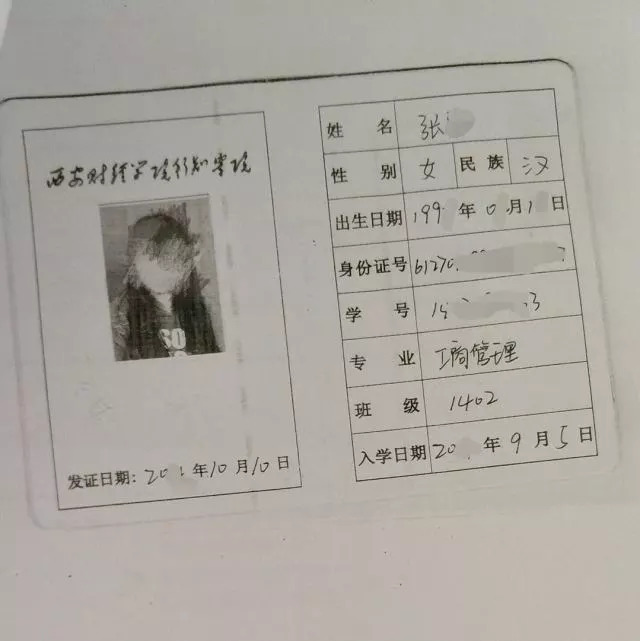 西安财经学院行知学院
发证日期：20 年10月10日
姓名 张
性别 女 民族 汉
出生日期 199 年0 月1 日
身份证号 61270
学号 3
专业 工商管理
班级 1402
入学日期 20 年9月5日